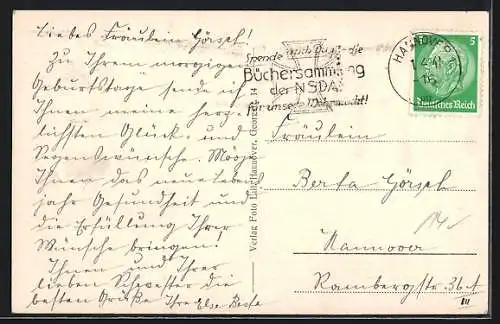 Liebes Fräulein Görsel!
Zu Ihrem morgigen
Geburtstage sende ich
Ihnen meine herz-
lichsten Glück- und
Segenswünsche. Möge
Ihnen das neue Lebens-
jahr Gesundheit und
die Erfüllung Ihrer
Wünsche bringen!
Ihnen und Ihrer
lieben Schwester die
besten Grüße Ihre Else
Verlag Foto Hannover, Georgstr. 14
Spende auch Du für die
Büchersammlung
der NSDAP
für unsere Wehrmacht!
HANNOVER
5
Deutsches Reich
Fräulein
Berta Görsel
Hannover
Rambergstr. 36 A
III